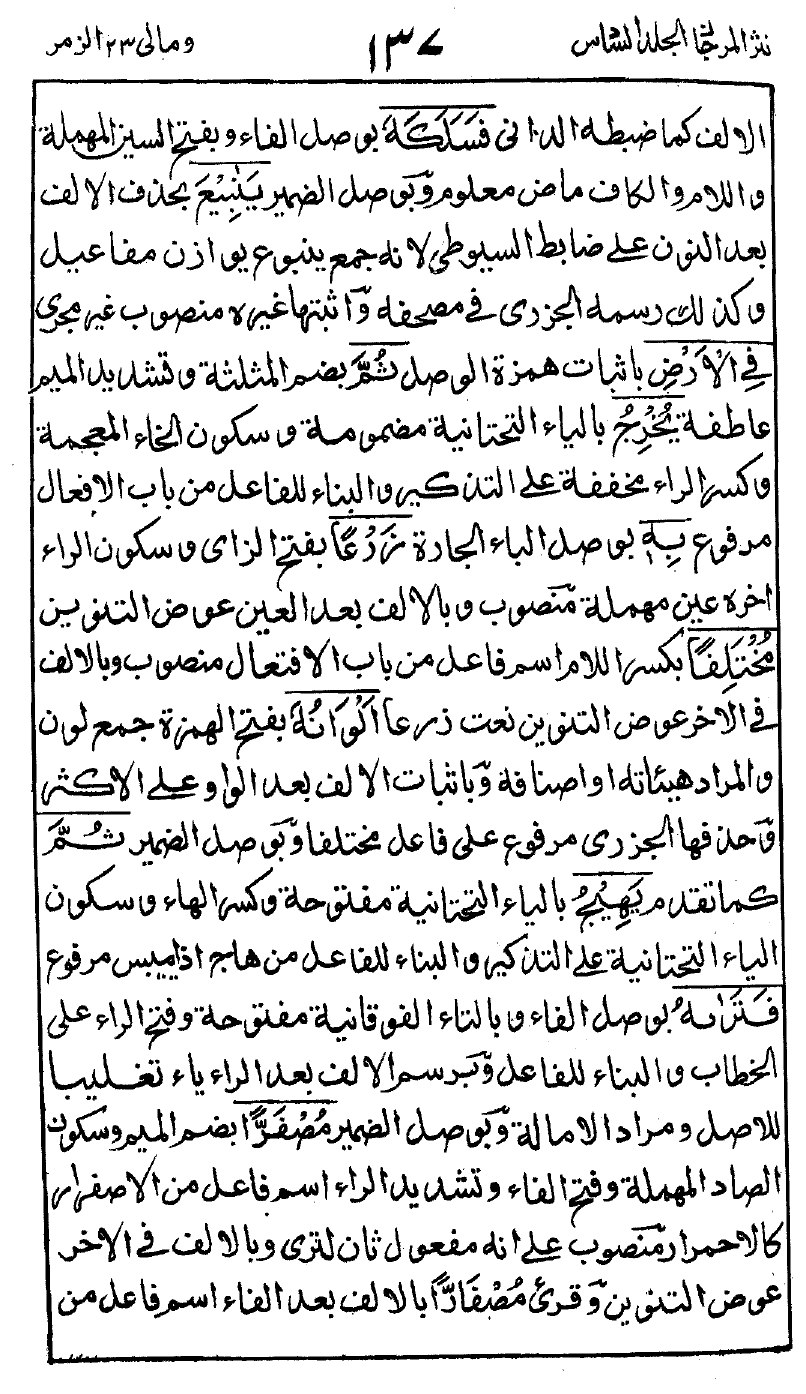 نثر المرجان الجلد السادس ١٣٧ ومالى ٢٣ الزمر
الالف كما ضبطه الدانى فَسَلَكَهٗ بوصل الفاء وبفتح السين المهملة
واللام والكاف ماض معلوم وبوصل الضمير يَنٰبِيْعَ بحذف الالف
بعد النون على ضابط السيوطى لانه جمع ينبوع يوازن مفاعيل
وكذلك رسمه الجزرى فى مصحفه واثبتها غيره منصوب غير مجرى
فِى الْاَرْضِ باثبات همزة الوصل ثُمَّ بضم المثلثة وتشديد الميم
عاطفة يُخْرِجُ بالياء التحتانية مضمومة وسكون الخاء المعجمة
وكسر الراء مخففة على التذكير والبناء للفاعل من باب الافعال
مرفوع بِهٖ بوصل الباء الجارة زَرْعًا بفتح الزاى وسكون الراء
اخره عين مهملة منصوب وبالالف بعد العين عوض التنوين
مُخْتَلِفًا بكسر اللام اسم فاعل من باب الافتعال منصوب وبالالف
فى الاخر عوض التنوين نعت زرعا اَلْوَانُهٗ بفتح الهمزة جمع لون
والمراد هيئاته او اصنافه وباثبات الالف بعد الواو على الاكثر
وحذفها الجزرى مرفوع على فاعل مختلفا وبوصل الضمير ثُمَّ
كما تقدم يَهِيْجُ بالياء التحتانية مفتوحة وكسر الهاء وسكون
الياء التحتانية على التذكير والبناء للفاعل من هاج اذا يبس مرفوع
فَتَرٰىهُ بوصل الفاء وبالتاء الفوقانية مفتوحة وفتح الراء على
الخطاب والبناء للفاعل وبرسم الالف بعد الراء ياء تغليبا
للاصل ومراد الامالة وبوصل الضمير مُصْفَرًّا بضم الميم وسكون
الصاد المهملة وفتح الفاء وتشديد الراء اسم فاعل من الاصفرار
كالاحمرار منصوب على انه مفعول ثان لترى وبالالف فى الاخر
عوض التنوين وقرئ مُصْفَارًّا بالالف بعد الفاء اسم فاعل من